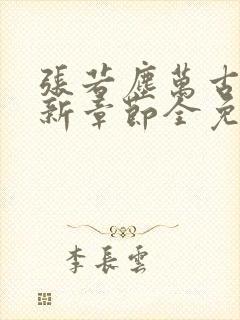 張若塵萬古
新章節全免
李長雲